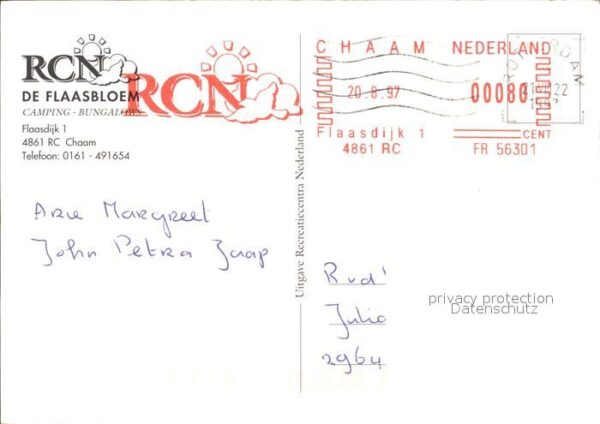 RCN
DE FLAASBLOEM
CAMPING - BUNGALOWS
Flaasdijk 1
4861 RC Chaam
Telefoon: 0161 - 491654
RCN
CHAAM NEDERLAND
20.8.97
00080
CENT
Flaasdijk 1
4861 RC
FR 56301
Uitgave Recreatiecentra Nederland
Arie Margreet
John Petra Jaap
Rudi
Julia
2964
privacy protection
Datenschutz